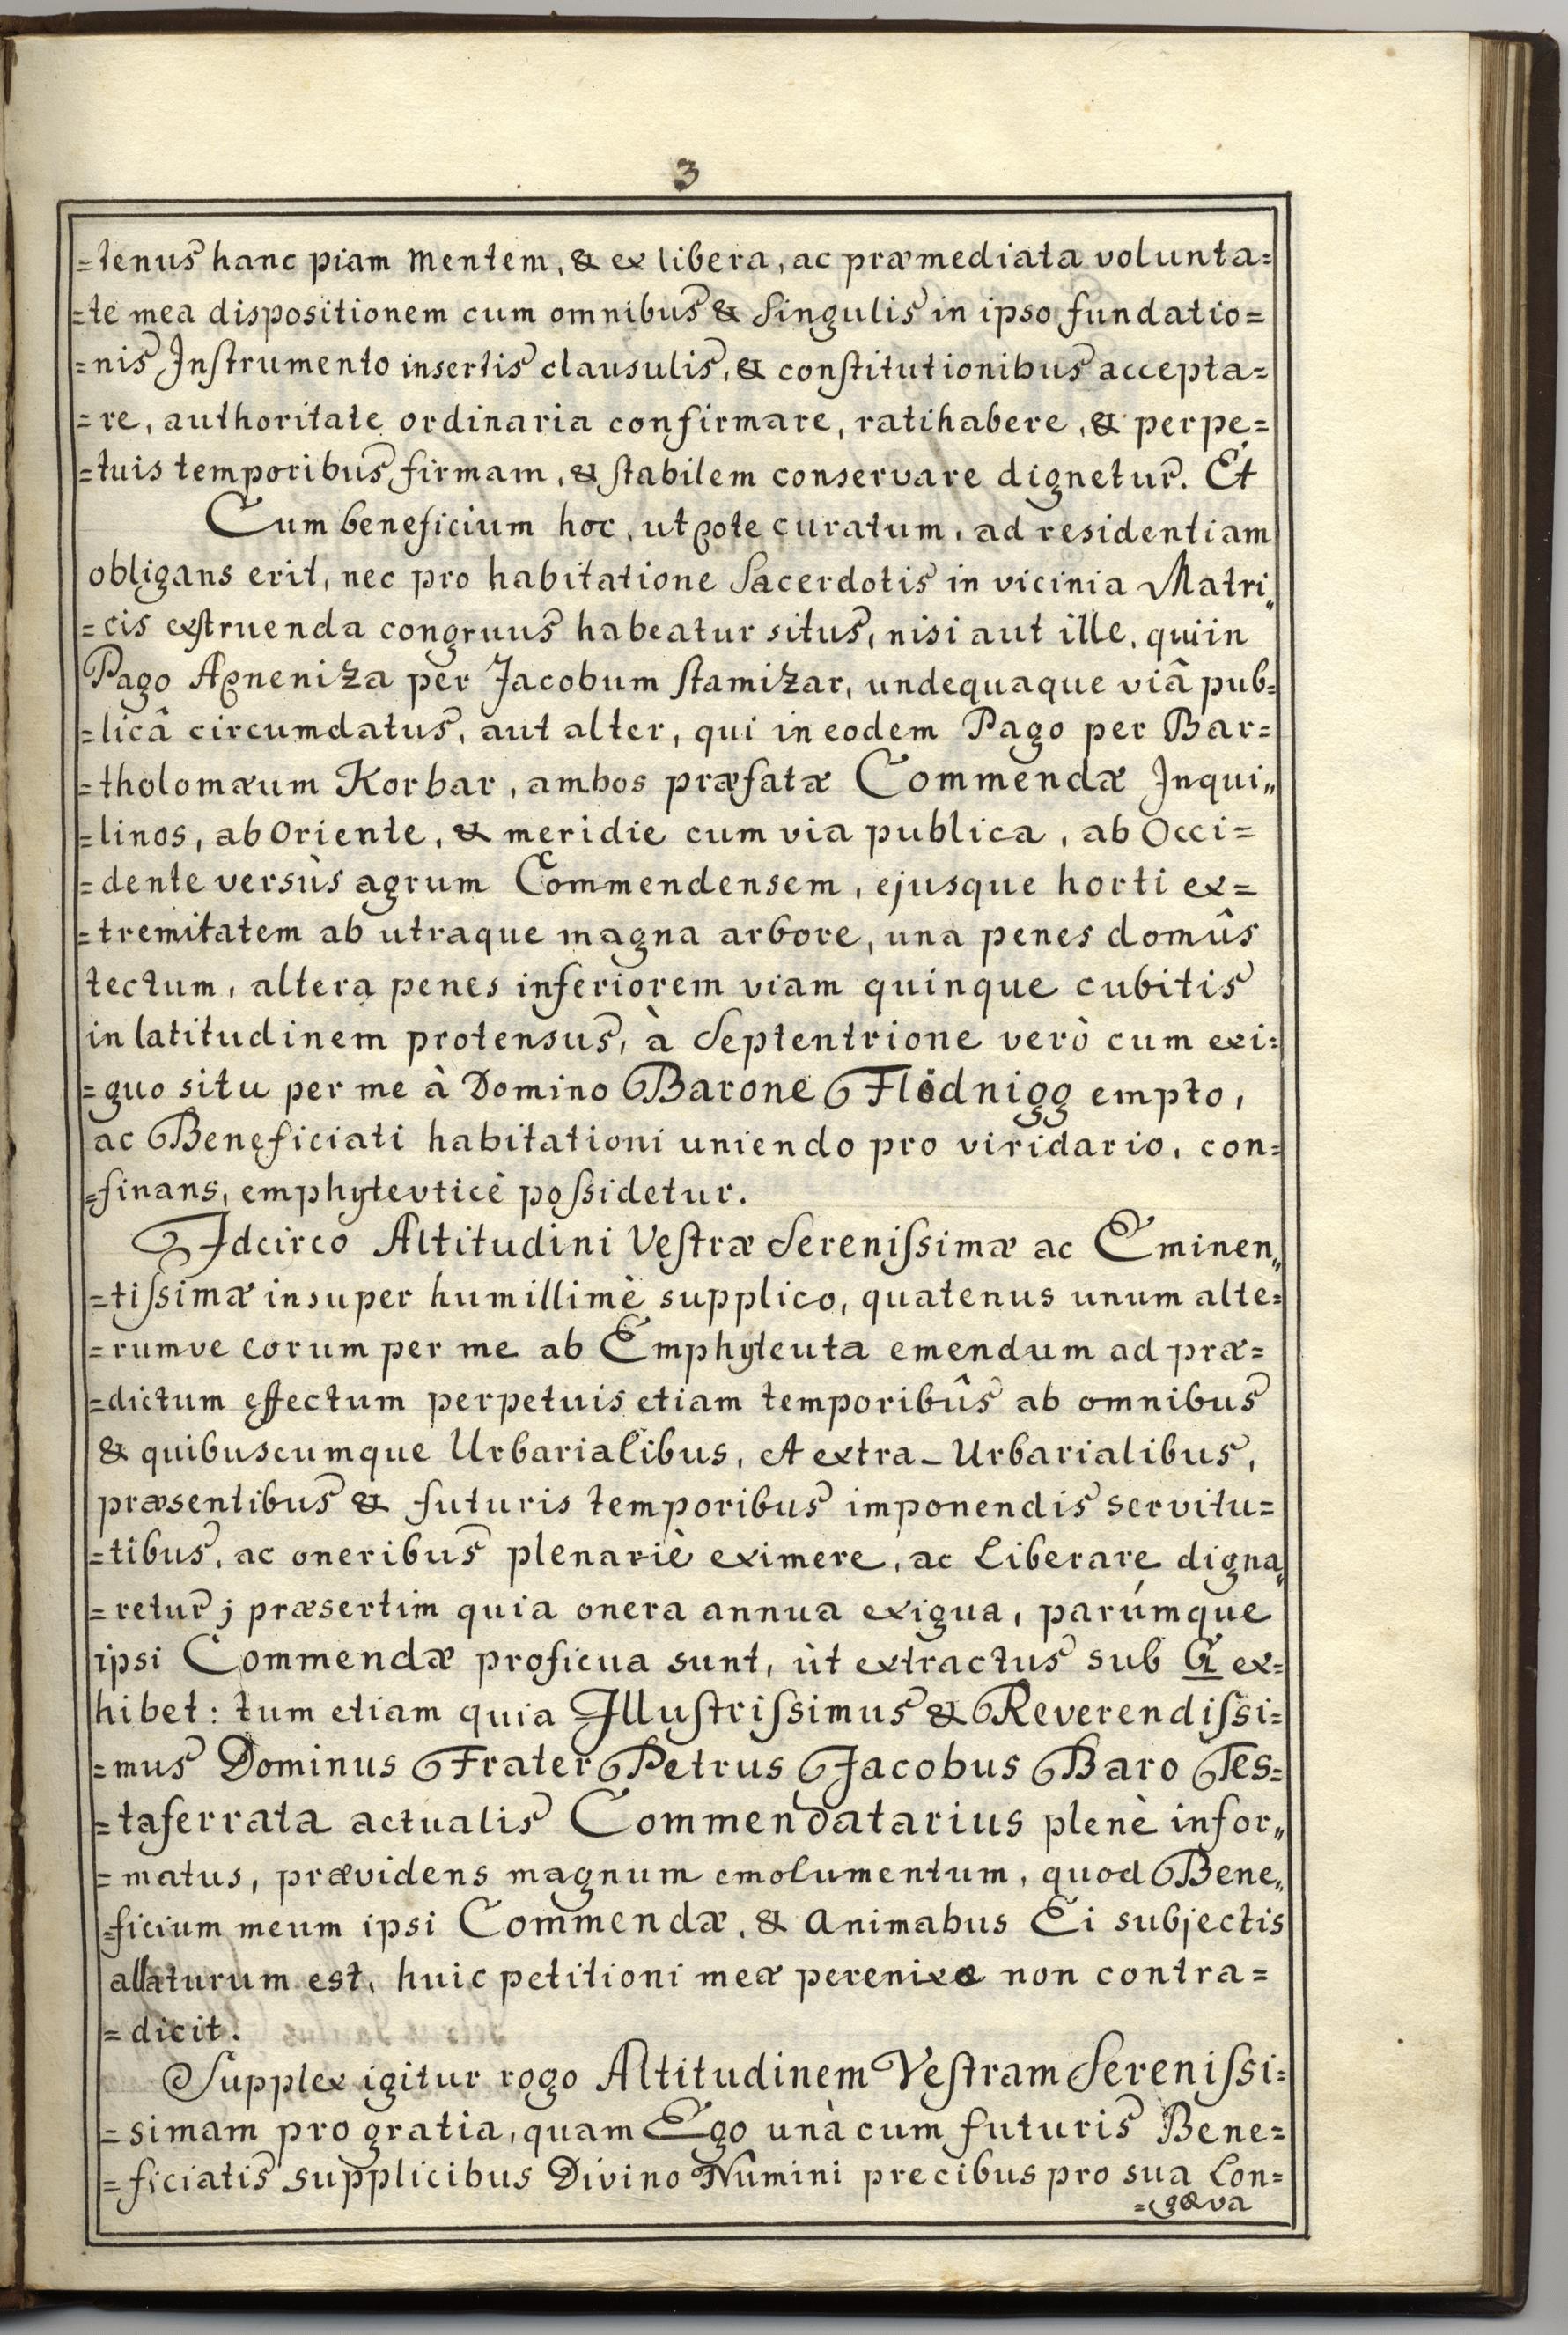 3
=tenus hanc piam mentem, & ex libera, ac præmediata volunta=
=te mea dispositionem cum omnibus & singulis in ipso fundatio=
=nis Inſtrumento insertis clausulis, & conſtitutionibus accepta=
=re, authoritate ordinaria confirmare, ratihabere, & perpe=
=tuis temporibus firmam, & ſtabilem conservare dignetur. Et
Cum beneficium hoc, utpote curatum, ad residentiam
obligans erit, nec pro habitatione Sacerdotis in vicinia Matri„
=cis exſtruenda congruus habeatur situs, nisi aut ille, qui in
Pago Apneniza per Jacobum ſtamizar, undequaque viâ pub=
=licâ circumdatus, aut alter, qui in eodem Pago per Bar=
=tholomæum Korbar, ambos præfatæ Commendæ Inqui„
=linos, ab Oriente, & meridie cum via publica, ab Occi=
=dente versùs agrum Commendensem, ejusque horti ex=
=tremitatem ab utraque magna arbore, una penes domûs
tectum, altera penes inferiorem viam quinque cubitis
in latitudinem protensus, à Septentrione verò cum exi=
=guo situ per me à Domino Barone Flödnigg empto,
ac Beneficiati habitationi uniendo pro viridario, con=
=finans, emphytevticè poſsidetur.
Idcirco Altitudini Veſtræ Sereniſsimæ ac Eminen„
=tiſsimæ insuper humillimè supplico, quatenus unum alte=
=rumve eorum per me ab Emphyteuta emendum ad præ=
=dictum effectum perpetuis etiam temporibûs ab omnibus
& quibuscumque Urbarialibus, et extra-Urbarialibus,
præsentibus & futuris temporibus imponendis servitu=
=tibus, ac oneribus plenariè eximere, ac liberare digna„
=retur; præsertim quia onera annua exigua, parúmque
ipsi Commendæ proficua sunt, ùt extractus sub G ex=
hibet: tum etiam quia Illuſtriſsimus & Reverendiſsi=
=mus Dominus Frater Petrus Jacobus Baro Tes=
=taferrata actualis Commendatarius plenè infor„
=matus, prævidens magnum emolumentum, quod Bene„
=ficium meum ipsi Commendæ, & Animabus Ei subjectis
allaturum est, huic petitioni meæ perenixæ non contra=
=dicit.
Supplex igitur rogo Altitudinem Veſtram Sereniſsi=
=simam pro gratia, quam Ego unà cum futuris Bene=
=ficiatis supplicibus Divino Numini precibus pro sua Lon=
=gæva